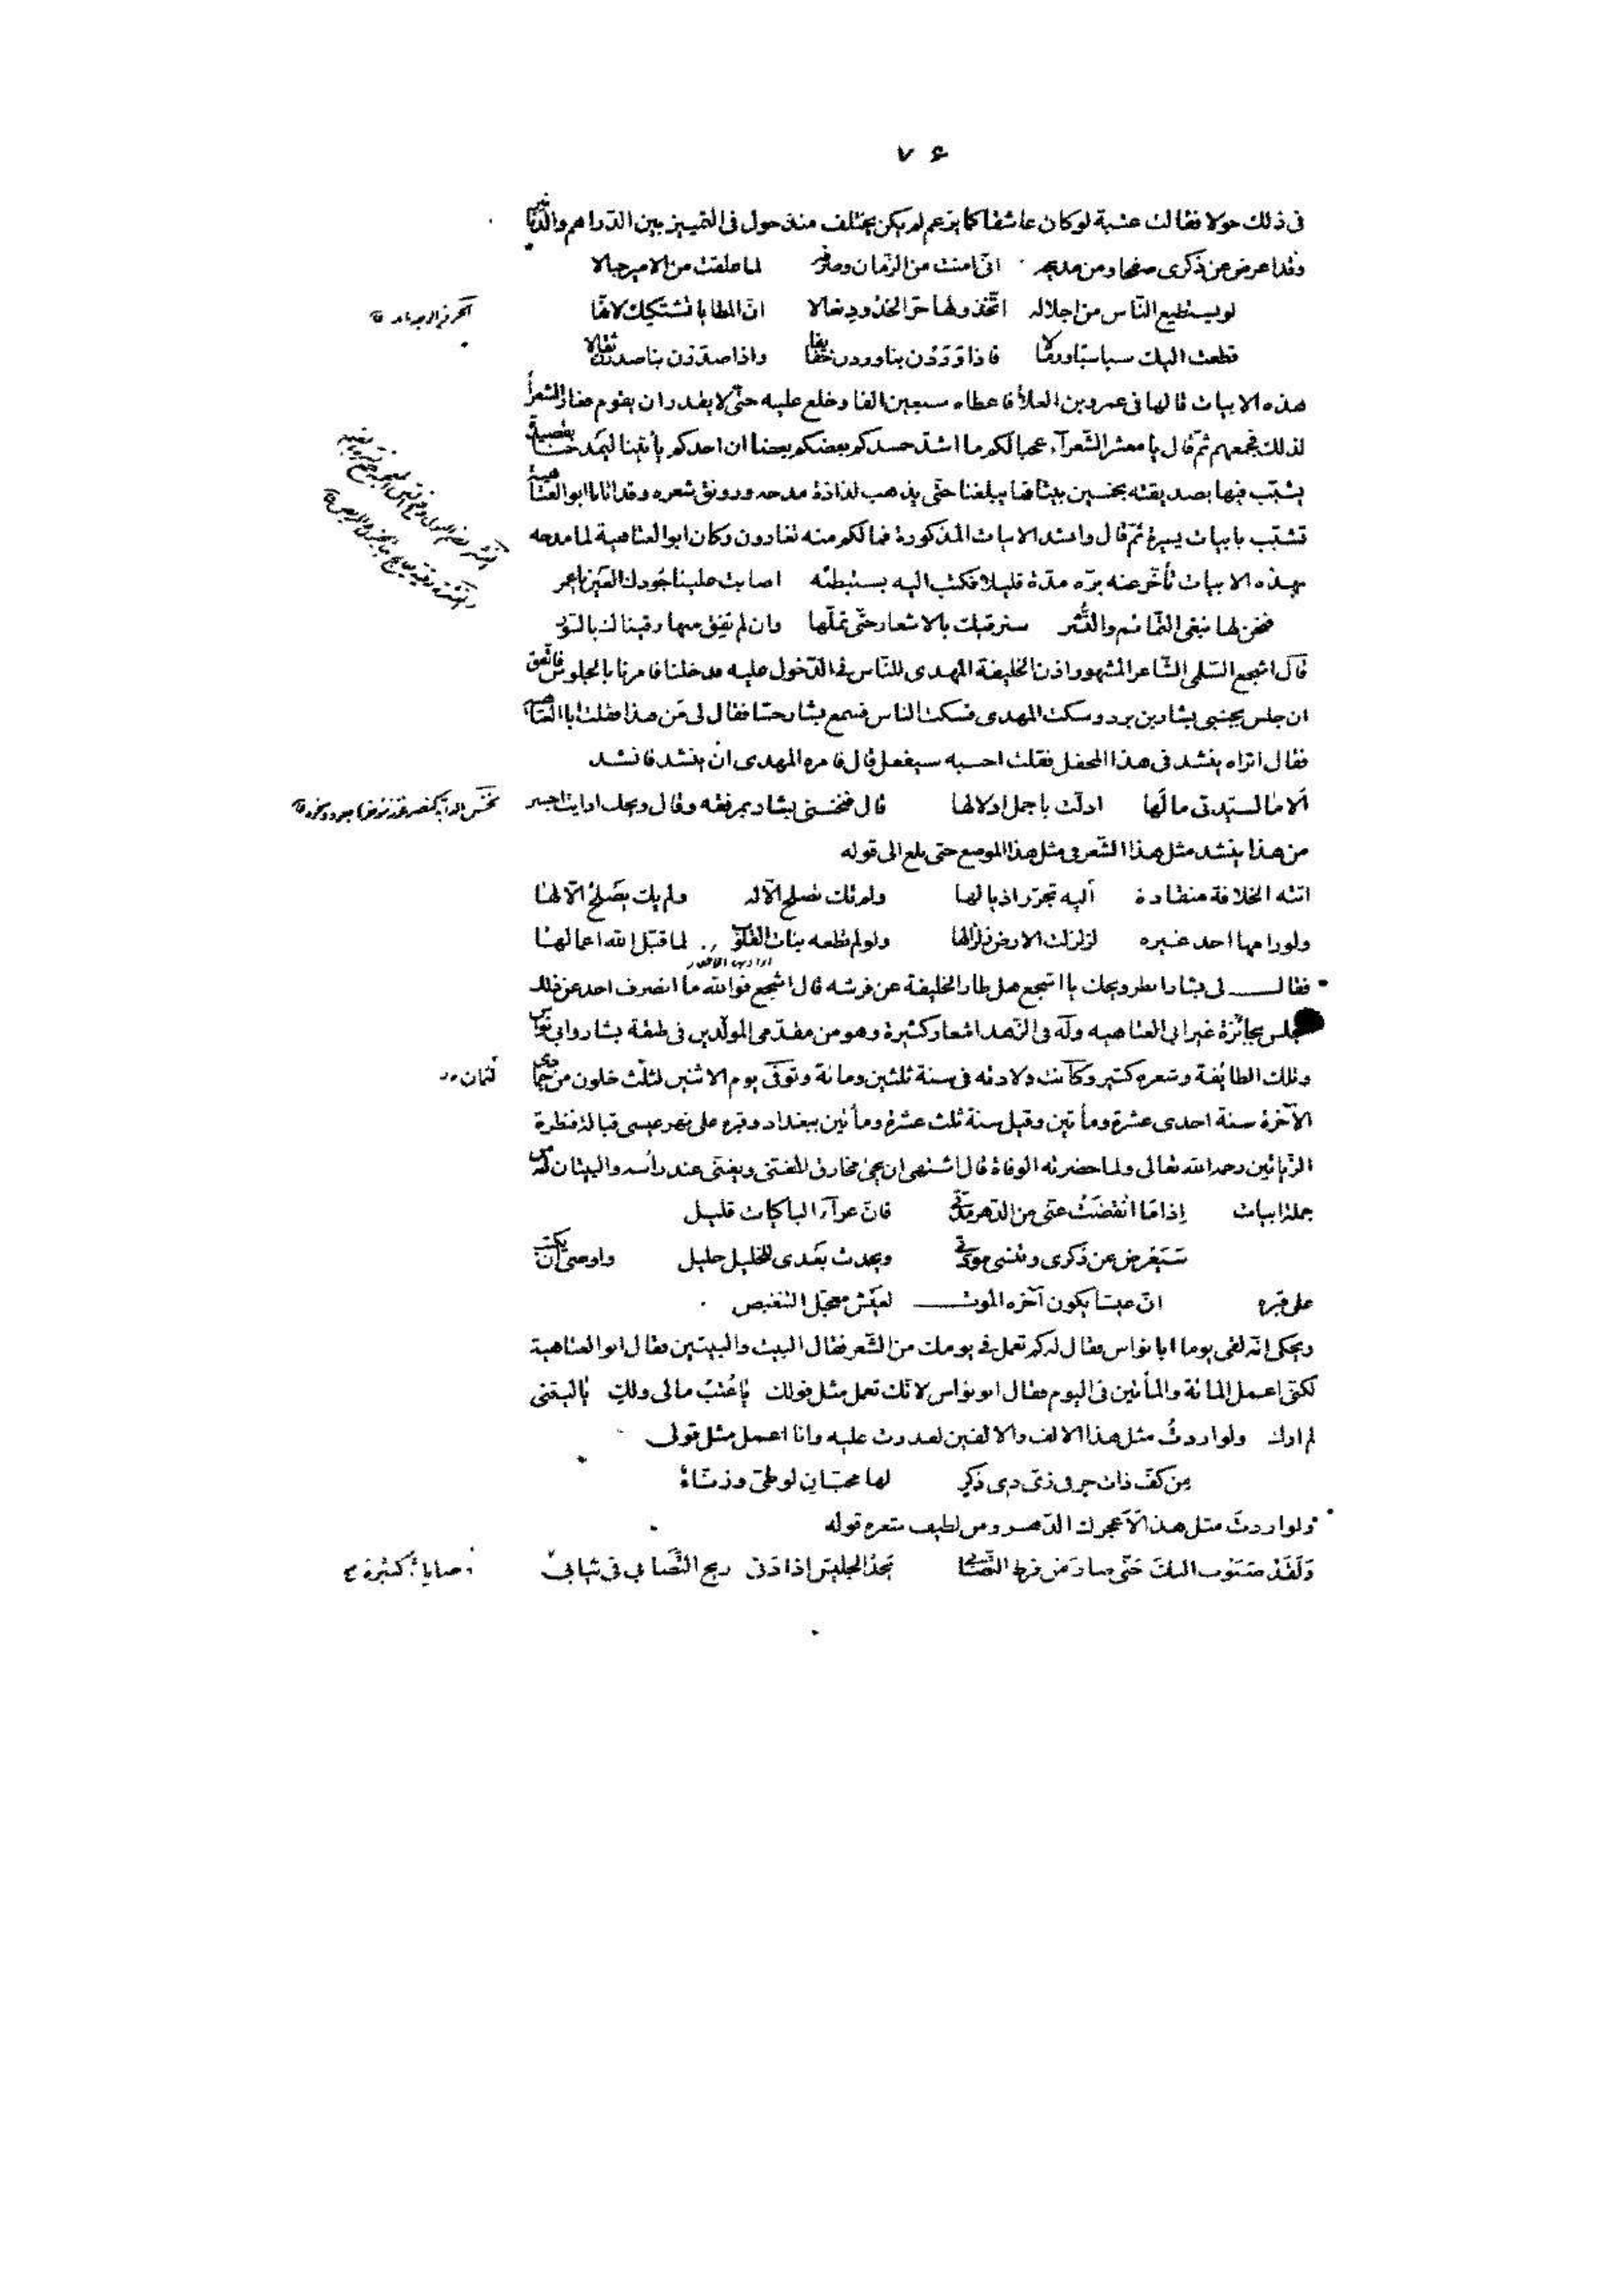 ٧۶
فى ذلك حولا فقالت عتبة لو كان عاشقا كما يزعم لم يكن يختلف منذ حول فى التمييز بين الدّراهم والدّنانير
وقد اعرض عن ذكرى صفحا ومن مديحه انّى امنت من الزّمان وصرفه لما علقت من الامير حبالا
لو يستطيع النّاس من اجلاله اتّخذوا لها حرّ الخدود نعالا انّ المطايا تشتكيك لانّها
قطعت اليك سباسبًا ورمالا فاذا وَرَدْن بنا وردن خفايفا واذا صدرن بنا صدرن ثقالا
هذه الابيات قالها فى عمرو بن العلاء فاعطاه سبعين الفا وخلع عليه حتّى لا يقدر ان يقوم فغار الشعرآء
لذلك فجمعهم ثمّ قال يا معشر الشّعرآء عجبا لكم ما اشدّ حسدكم بعضكم بعضا ان احدكم يأتينا ليمدحنا بقصيدة
يشبّب فيها بصديقته بخمسين بيتا فما يبلغنا حتّى يذهب لذاذة مدحه ورونق شعره وقد اتانا ابو العتاهية
فشبّب بابيات يسيرة ثمّ قال وانشد الابيات المذكورة فما لكم منه تغارون وكان ابو العتاهية لما مدحه
بهذه الابيات تأخّر عنه برّه مدّة قليلا فكتب اليه يستبطئه اصابت علينا جُودك العين يا عمر
فنحن لها نبغى التّمائم والنُّشر سنرقيك بالاشعار حتّى تملّها وان لم تفق منها رقيناك بالسّور
قال اشجع السّلمى الشّاعر المشهور اذن الخليفة المهدى للنّاس فى الدّخول عليه فدخلنا فامرنا بالجلوس فاتّفق
ان جلس بجنبى بشار بن برد وسكت المهدى فسكت الناس فسمع بشار حسّا فقال لى مَن هذا فقلت ابا العتاهية
فقال اتراه ينشد فى هذا المحفل فقلت احسبه سيفعل قال فامره المهدى ان ينشد فانشد
اَلا ما لسيّدتى ما لَها ادلّت باجمل ادلالها قال فنخسنى بشار بمرفقه وقال ويحك ارايت اجسر
من هذا ينشد مثل هذا الشّعر فى مثل هذا الموضع حتى بلغ الى قوله
اتته الخلافة منقادة اليه تجرّر اذيالها ولم تك تصلح الّا له ولم يك يَصلحُ الّا لها
ولو رامها احد غيره لزلزلت الارض زلزالها ولو لم تطعه بنات القلوب لما قبّل الله اعمالها
فقال لى بشار انظر ويحك يا اشجع هل طار الخليفة عن فرشه قال اشجع فوالله ما انصرف احد عن ذلك
المجلس بجائزة غير ابى العتاهيه وله فى الزّهد اشعار كثيرة وهو من مقدّمى المولّدين فى طبقة بشار وابى نواس
وتلك الطائفة وشعره كثير وكانت ولادته فى سنة ثلثين ومائة وتوفّى يوم الاثنين لثلث خلون من جمادى
الآخرة سنة احدى عشرة ومأتين وقيل سنة ثلث عشرة ومأتين ببغداد وقبره على نهر عيسى قبالة قنطرة
الزيّاتين رحمه الله تعالى ولما حضرته الوفاة قال اشتهى ان يجئ مخارق المغنى ويغنّى عند رأسه والبيتان له من
جملة ابيات إذا مَا انْقَضَتْ عنّى من الدّهر مدّتى فانّ عزآء الباكيات قليل
سَيَعْرض عن ذكرى وتنسى مودّتى ويحدث بَعْدى للخليل خليل واوصى ان يكتب
على قبره انّ عيشا يكون آخره الموت لَعَيْش معجّل التنغيص
ويحكى انّه لقى يوما ابا نواس فقال له كم تعمل فى يومك من الشّعر فقال البيت والبيتين فقال ابو العتاهية
لكنّى اعمل المائة والمأتين فى اليوم فقال ابو نواس لانّك تعمل مثل قولك يا عُتْبُ ما لى ولكِ يا ليتنى
لم ارك ولو اردتُ مثل هذا الالف والالفين لقدرت عليه وانا اعمل مثل قولى
مِن كفّ ذات حر فى زىّ ذى ذكر لها محبّان لوطىّ وزنّاءُ
ولو اردتَ مثل هذا لاَعجزك الدّهر ومن لطيف شعره قوله
وَلَقَدْ صَبَوْت اليك حَتّى صار مَن فرط التّصابى يجد الجليس اذا دَنى ريح التّصابى فى ثيابى